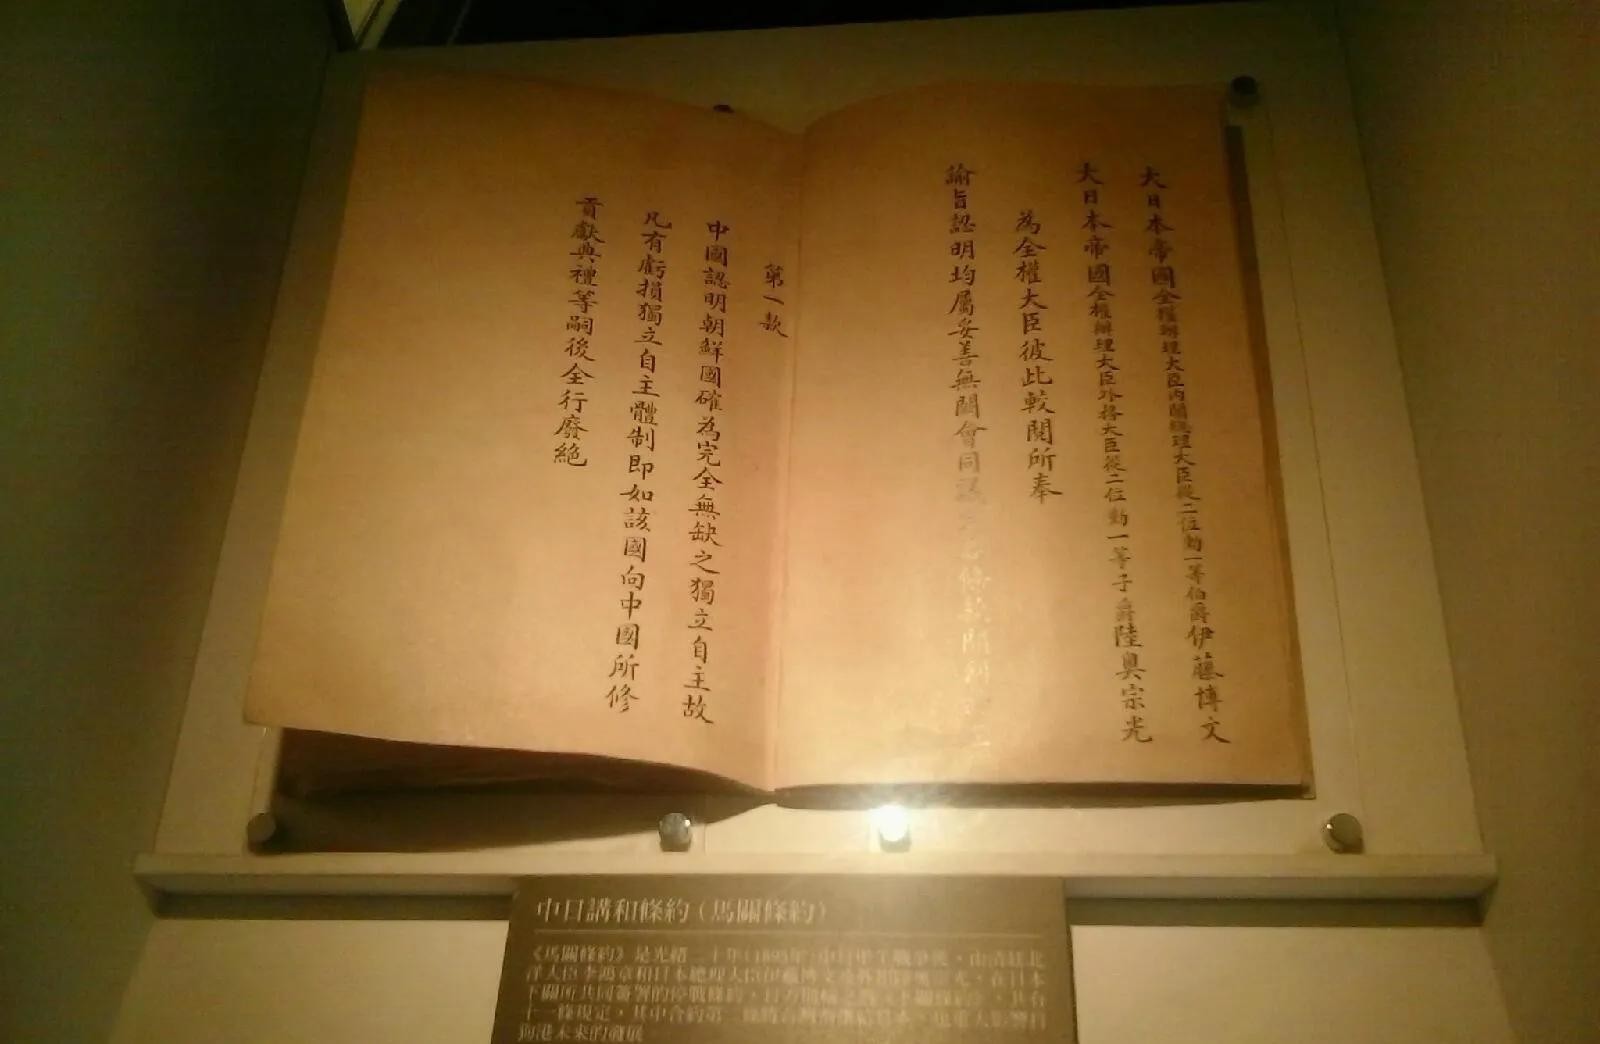 大日本帝國全權辦理大臣內閣總理大臣從二位勳一等伯爵伊藤博文
大日本帝國全權辦理大臣外務大臣從二位勳一等子爵陸奧宗光
為全權大臣彼此較閱所奉
諭旨認明均屬妥善無闕會同議 各條款開列
第一款
中國認明朝鮮國確為完全無缺之獨立自主故
凡有虧損獨立自主體制即如該國向中國所修
貢獻典禮等嗣後全行廢絕
中日講和條約（馬關條約）
《馬關條約》是光緒二十年(1895年)中日甲午戰爭後，由清廷北
洋大臣李鴻章和日本總理大臣伊藤博文 ，在日本
下關所共同簽署的停戰條約， 共有
十一條規定，其中合約第二條將台灣 日本，也重大影響打
狗港未來的發展